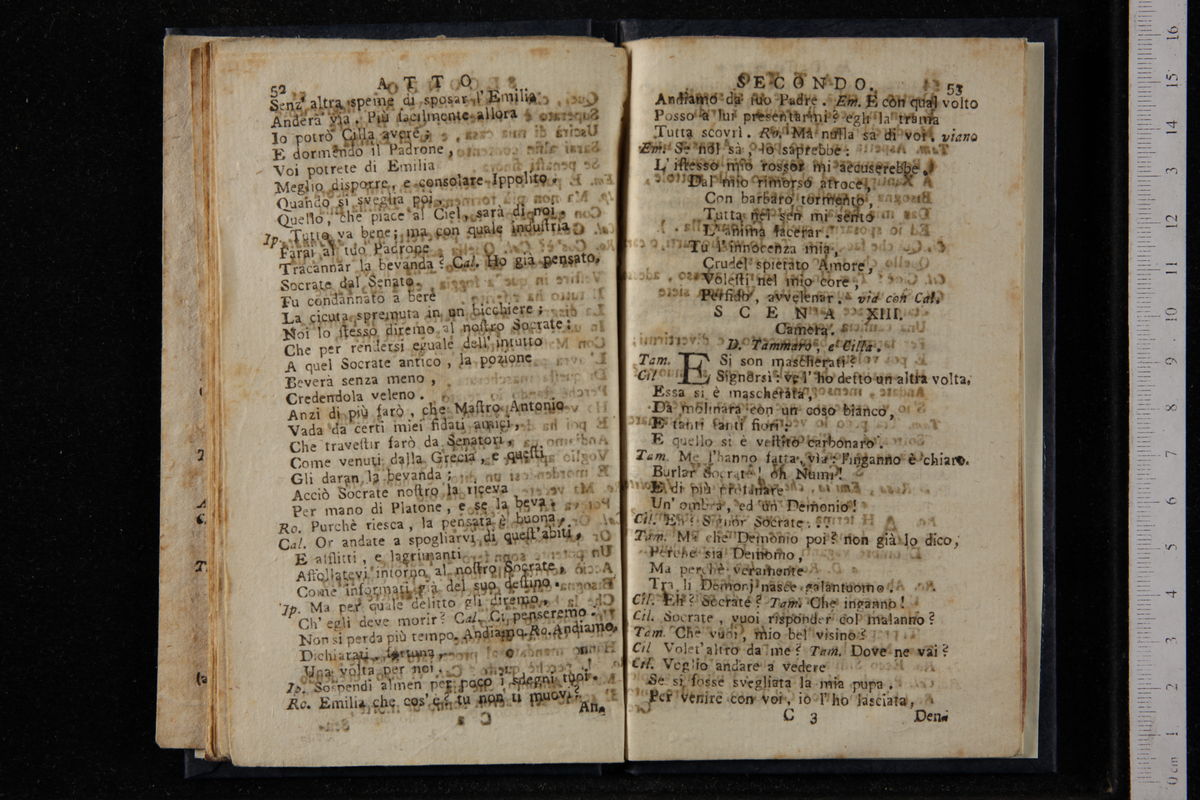 52 A T T O
Senz' altra speme di sposar l'Emilia
Anderà via. Più facilmente allora
Io potrò Cilla avere;
E dormendo il Padrone,
Voi potrete di Emilia
Meglio disporre, e consolare Ippolito.
Quando si sveglia poi,
Quello, che piace al Ciel, sarà di noi.
Ip. Tutto va bene; ma con quale industria
Farai al tuo Padrone
Tracannar la bevanda? Cal. Ho già pensato.
Socrate dal Senato
Fu condannato a bere
La cicuta spremuta in un bicchiere;
Noi lo ſteſſo diremo al noſtro Socrate;
Che per renderſi eguale dell' intutto
A quel Socrate antico, la pozione
Beverà senza meno,
Credendola veleno.
Anzi di più farò, che Maſtro Antonio
Vada da certi miei fidati amici,
Che traveſtir farò da Senatori,
Come venuti dalla Grecia, e queſti
Gli daran la bevanda;
Acciò Socrate noſtro la riceva
Per mano di Platone, e se la beva.
Ro. Purchè riesca, la pensata è buona.
Cal. Or andate a spogliarvi di queſt' abiti,
E afflitti, e lagrimanti
Affollatevi intorno al noſtro Socrate,
Come informati già del suo deſtino.
Ip. Ma per quale delitto gli diremo,
Ch' egli deve morir? Cal. Ci penseremo.
Non si perda più tempo. Andiamo. Ro. Andiamo,
Dichiarati, fortuna,
Una volta per noi.
Ip. Sospendi almen per poco i sdegni tuoi.
Ro. Emilia che cos' è? tu non ti muovi?
C 2 An-
SECONDO. 53
Andiamo da tuo Padre. Em. E con qual volto
Posso a lui presentarmi? egli la trama
Tutta scovrì. Ro. Ma nulla sa di voi. viano
Em. Se nol sà, lo saprebbe:
L' iſteſſo mio roſſor mi accuserebbe.
Dal mio rimorso atroce,
Con barbaro tormento,
Tutta nel sen mi sento
L' anima lacerar.
Tu l' innocenza mia,
Crudel spietato Amore,
Voleſti nel mio core,
Perfido, avvelenar. via con Cal.
S C E N A XIII.
Camera.
D. Tammaro, e Cilla.
Tam. E Si son mascherati?
Cil Signorsì: ve l' ho detto un altra volta.
Essa si è mascherata,
Da molinara con un coso bianco,
E tanti tanti fiori:
E quello si è veſtito carbonaro.
Tam. Me l' hanno fatta, via: l'inganno è chiaro.
Burlar Socrate! oh Numi!
E di più profanare
Un' ombra, ed un Demonio!
Cil. Eh? Signor Socrate...
Tam. Ma che Demonio poi? non già lo dico,
Perchè sia Demonio,
Ma perchè veramente
Tra li Demonj nasce galantuomo.
Cil. Eh? Socrate? Tam. Che inganno!
Cil. Socrate, vuoi risponder col malanno?
Tam. Che vuoi, mio bel visino?
Cil Volet' altro da me? Tam. Dove ne vai?
Cil. Voglio andare a vedere
Se si fosse svegliata la mia pupa.
Per venire con voi, io l' ho lasciata,
C 3 Den-